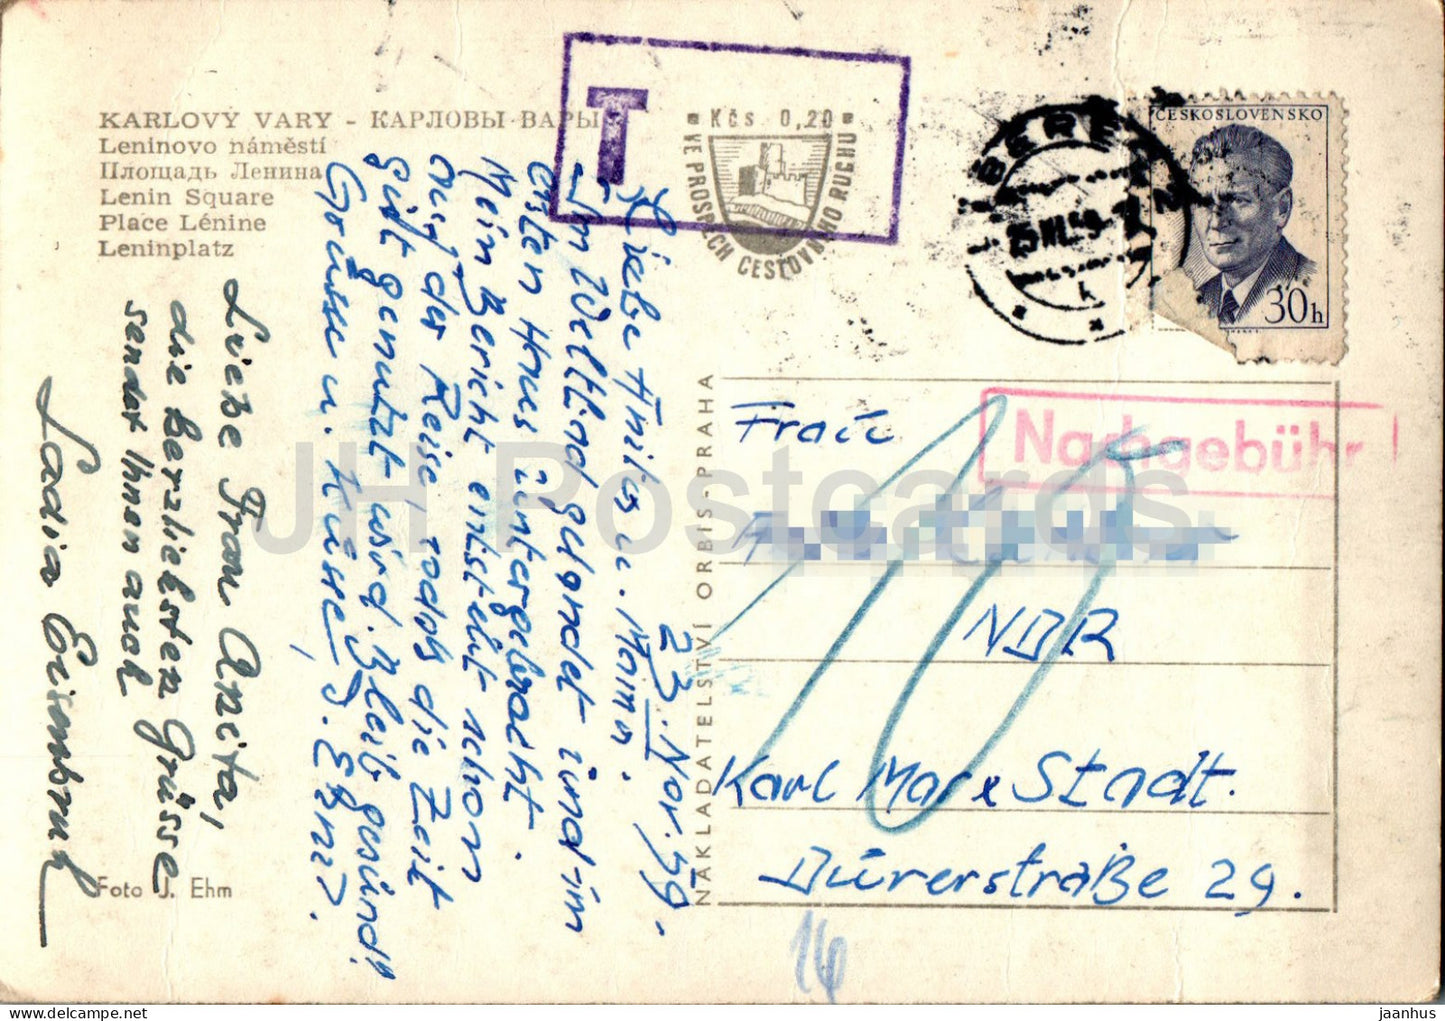 KARLOVÝ VARY - КАРЛОВЫ ВАРЫ
Leninovo náměstí
Площадь Ленина
Lenin Square
Place Lénine
Leninplatz
T
Kčs 0,20
VE PROSPĚCH CESTOVNÍHO RUCHU
25.VII.59
ČESKOSLOVENSKO
30h
Nachgebühr
10
23. Nov. 59.
Liebe Anita u. Mann.
Im Weltbad gelandet und im
ersten Haus untergebracht.
Mein Bericht entsteht schon
auf der Reise, sodass die Zeit
gut genutzt wird. Bleib gesund!
Grüsse u. Küsse,
Liebe Frau Anita,
die herzliebsten Grüsse
sendet Ihnen auch
Foto J. Ehm
NAKLADATELSTVÍ ORBIS-PRAHA
Frau
DDR
Karl Marx Stadt.
Dürerstraße 29.
16
JH Postcards
delcampe.net
jaanhus